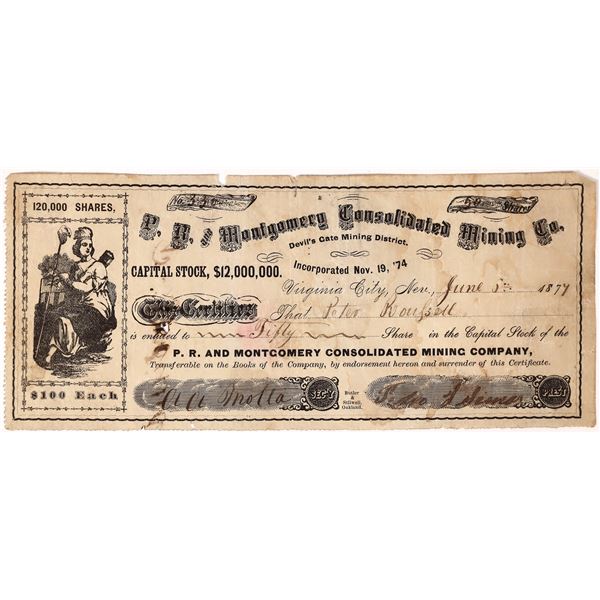 120,000 SHARES,
No 330
50 Shares
P. R. and Montgomery Consolidated Mining Co.
Devil's Gate Mining District.
CAPITAL STOCK, $12,000,000.
Incorporated Nov. 19, '74
Virginia City, Nev. June 5th 1877
This Certifies That Peter
is entitled to Fifty Share in the Capital Stock of the
P. R. AND MONTGOMERY CONSOLIDATED MINING COMPANY,
Transferable on the Books of the Company, by endorsement hereon and surrender of this Certificate.
$100 Each
SEC'Y
Butler
&
Stilwell,
Oakland.
PREST